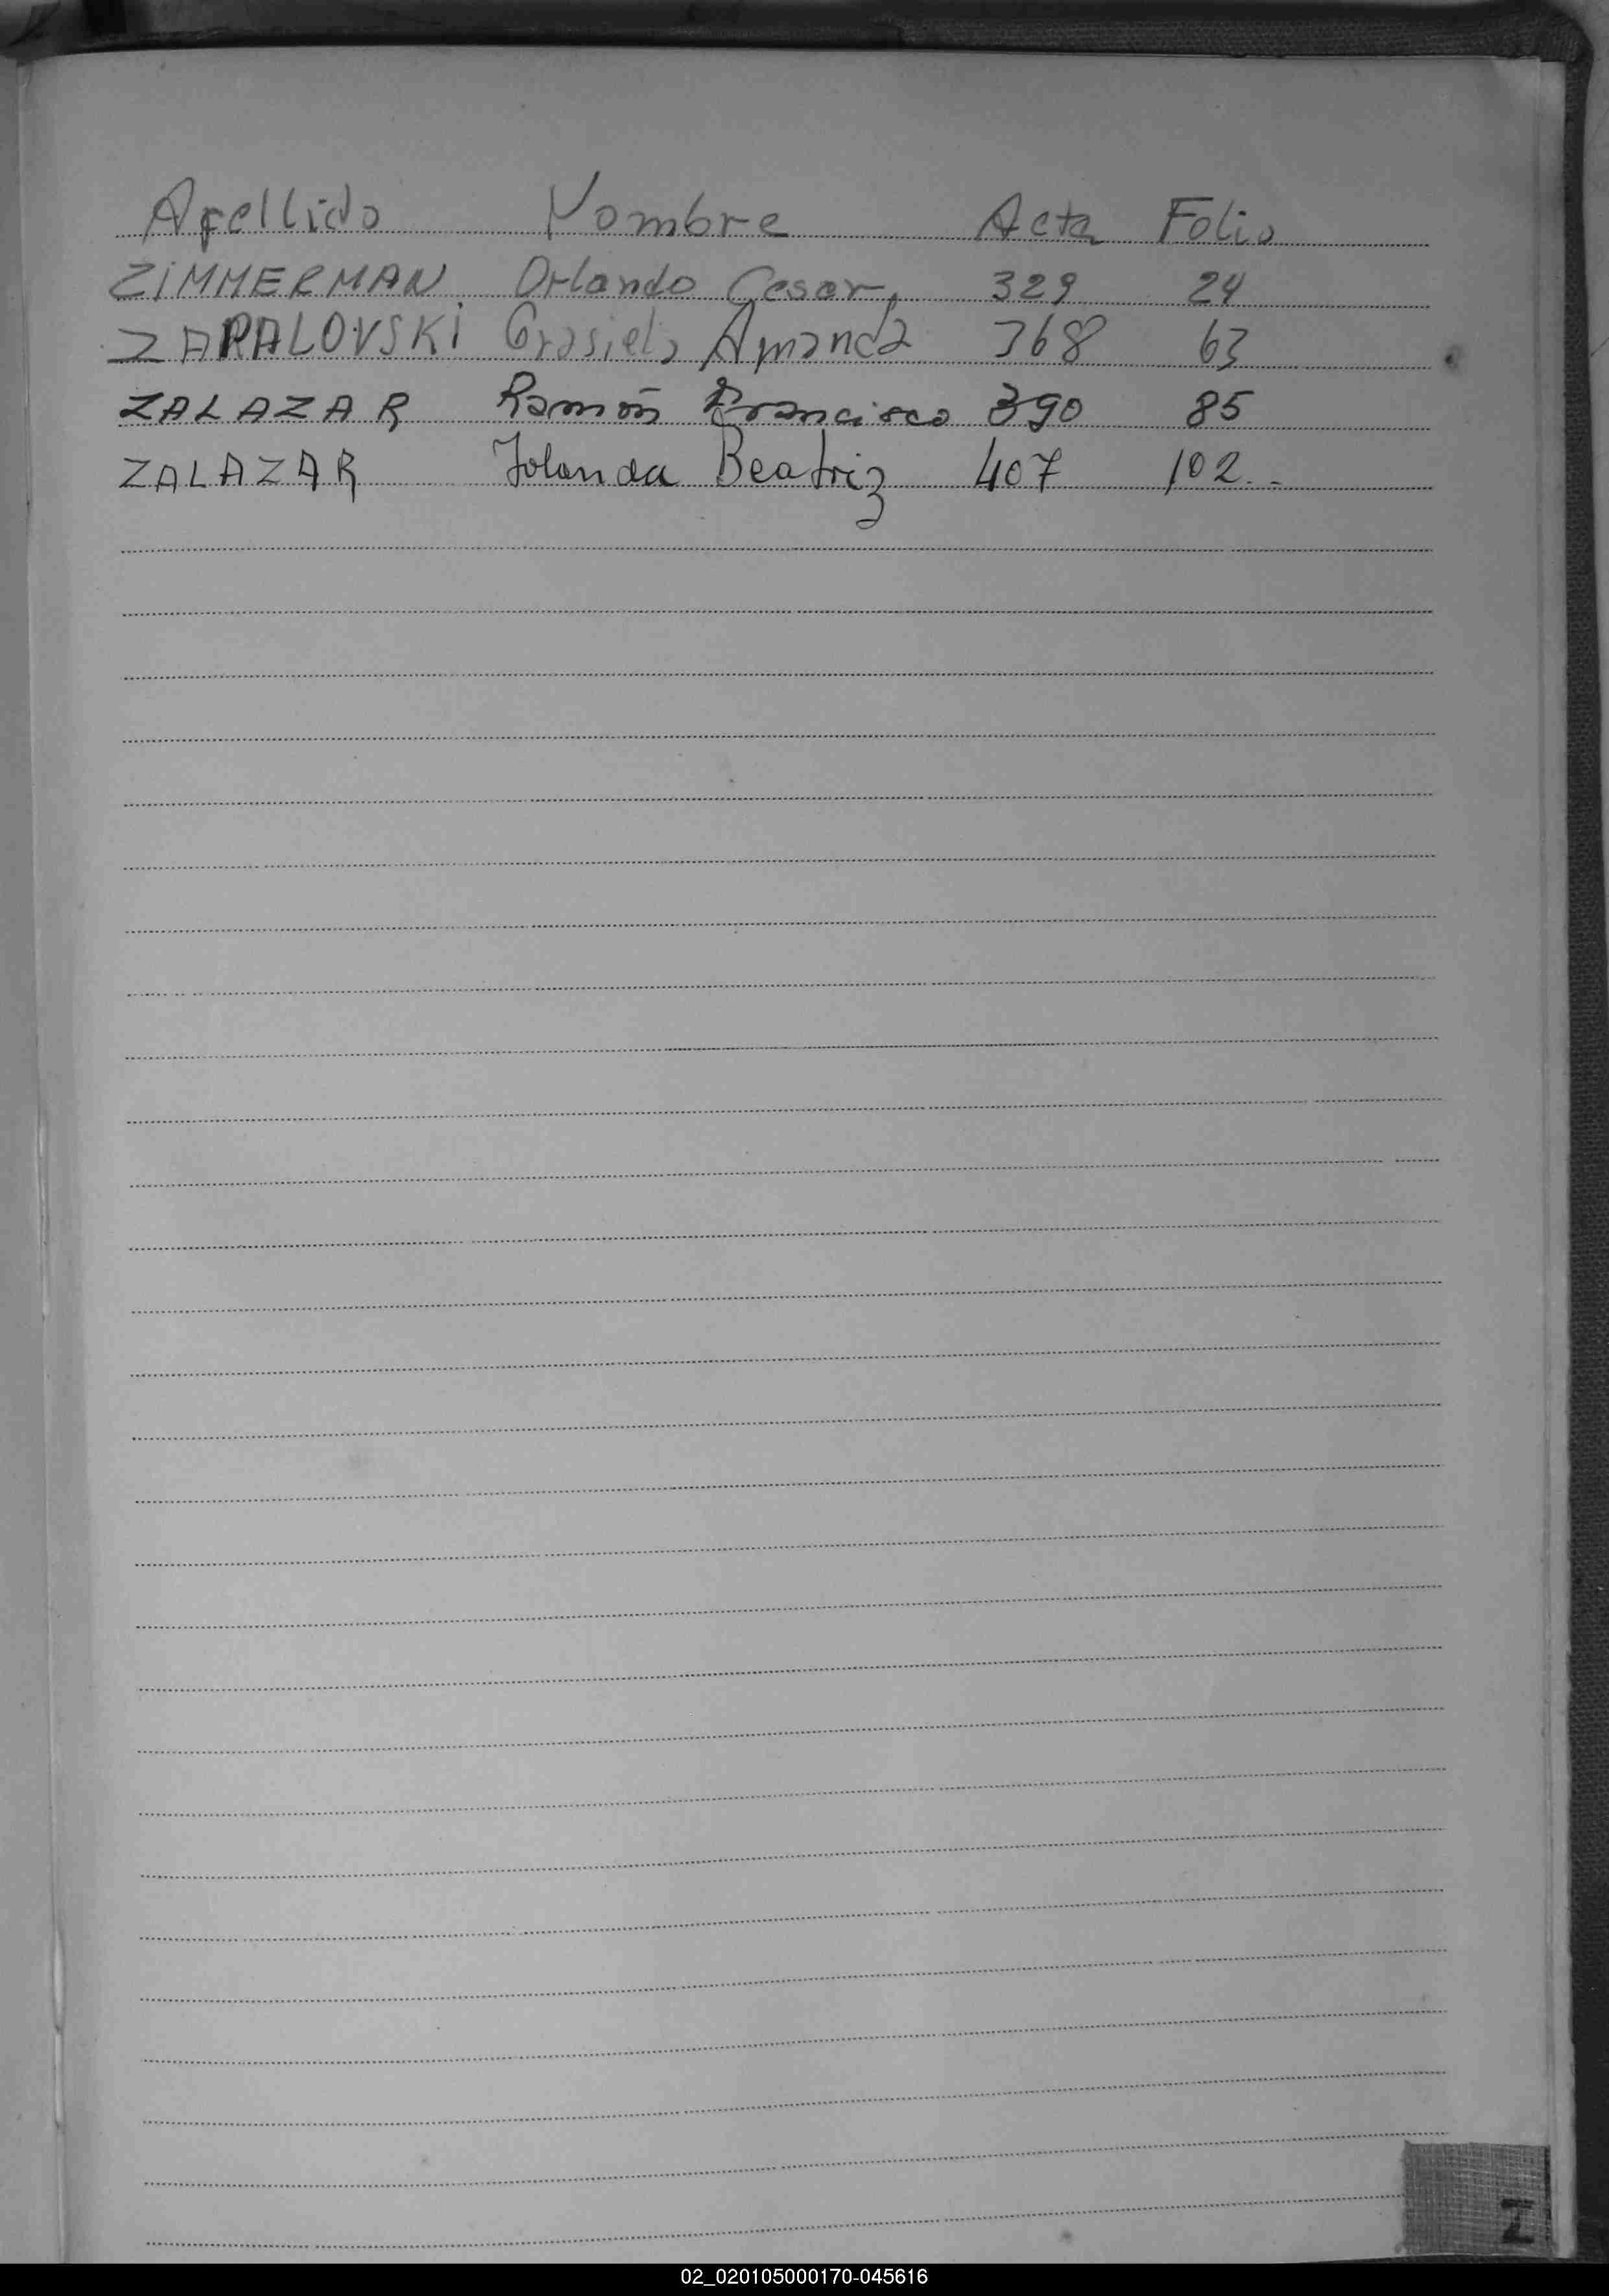 Apellido Nombre Acta Folio
ZIMMERMAN Orlando Cesar, 329 24
ZARALOVSKI Grasiela Amanda 368 63
ZALAZAR Ramón Francisco 390 85
ZALAZAR Yolanda Beatriz 407 102.-
Z
02_020105000170-045616